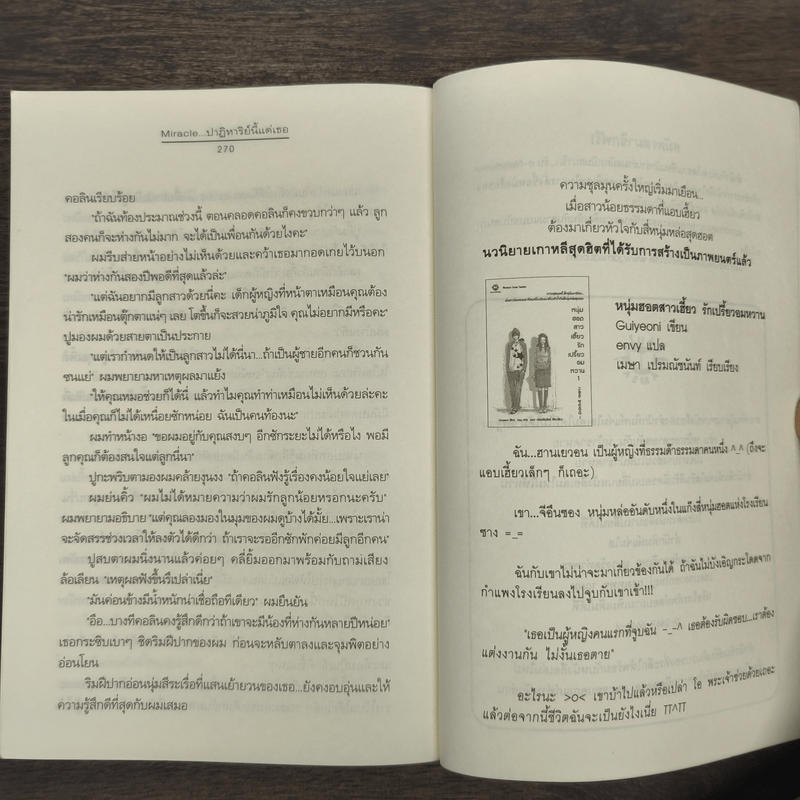 Miracle...ปาฏิหาริย์นี้แด่เธอ
270
คอลินเรียบร้อย
"ถ้าฉันท้องประมาณช่วงนี้ ตอนคลอดคอลินก็คงขวบกว่าๆ แล้ว ลูก
สองคนก็จะห่างกันไม่มาก จะได้เป็นเพื่อนกันด้วยไงคะ"
ผมรีบส่ายหน้าอย่างไม่เห็นด้วยและคว้าเธอมากอดเกยไว้บนอก
"ผมว่าห่างกันสองปีพอดีที่สุดแล้วล่ะ"
"แต่ฉันอยากมีลูกสาวด้วยนี่คะ เด็กผู้หญิงที่หน้าตาเหมือนคุณต้อง
น่ารักเหมือนตุ๊กตาแน่ๆ เลย โตขึ้นก็จะสวยน่าภูมิใจ คุณไม่อยากมีหรือคะ"
ปูมองผมด้วยสายตาเป็นประกาย
"แต่เรากำหนดให้เป็นลูกสาวไม่ได้นี่นา...ถ้าเป็นผู้ชายอีกคนก็ชวนกัน
ซนแย่" ผมพยายามหาเหตุผลมาแย้ง
"ให้คุณหมอช่วยก็ได้นี่ แล้วทำไมคุณทำท่าเหมือนไม่เห็นด้วยล่ะคะ
ในเมื่อคุณก็ไม่ได้เหนื่อยซักหน่อย ฉันเป็นคนท้องนะ"
ผมทำหน้างอ "ขอผมอยู่กับคุณสงบๆ อีกซักระยะไม่ได้หรือไง พอมี
ลูกคุณก็ต้องสนใจแต่ลูกนี่นา"
ปูกะพริบตามองผมคล้ายงุนงง "ถ้าคอลินฟังรู้เรื่องคงน้อยใจแย่เลย"
ผมย่นคิ้ว "ผมไม่ได้หมายความว่าผมรักลูกน้อยหรอกนะครับ"
ผมพยายามอธิบาย "แต่คุณลองมองในมุมของผมดูบ้างได้มั้ย...เพราะเราน่า
จะจัดสรรช่วงเวลาให้ลงตัวได้ดีกว่า ถ้าเราจะรออีกซักพักค่อยมีลูกอีกคน"
ปูสบตาผมนิ่งนานแล้วค่อยๆ คลี่ยิ้มออกมาพร้อมกับถามเสียง
ล้อเลียน "เหตุผลฟังขึ้นรึเปล่าเนี่ย"
"มันค่อนข้างมีน้ำหนักน่าเชื่อถือทีเดียว" ผมยืนยัน
"อือ...บางทีคอลินคงรู้สึกดีกว่าถ้าเขาจะมีน้องที่ห่างกันหลายปีหน่อย"
เธอกระซิบเบาๆ ชิดริมฝีปากของผม ก่อนจะหลับตาลงและจุมพิตอย่าง
อ่อนโยน
ริมฝีปากอ่อนนุ่มสีระเรื่อที่แสนเย้ายวนของเธอ...ยังคงอบอุ่นและให้
ความรู้สึกดีที่สุดกับผมเสมอ
ความชุลมุนครั้งใหญ่เริ่มมาเยือน...
เมื่อสาวน้อยธรรมดาที่แอบเฮี้ยว
ต้องมาเกี่ยวหัวใจกับสี่หนุ่มหล่อสุดฮอต
นวนิยายเกาหลีสุดฮิตที่ได้รับการสร้างเป็นภาพยนตร์แล้ว
หนุ่ม
ฮอต
สาว
เฮี้ยว
รัก
เปรี้ยว
อม
หวาน
1
หนุ่มฮอตสาวเฮี้ยว รักเปรี้ยวอมหวาน
Guiyeoni เขียน
envy แปล
เมษา เปรมณัชนันท์ เรียบเรียง
ฉัน...ฮานเยวอน เป็นผู้หญิงที่ธรรมด๊าธรรมดาคนหนึ่ง ^_^ (ถึงจะ
แอบเฮี้ยวเล็กๆ ก็เถอะ)
เขา...จีอึนซอง หนุ่มหล่ออันดับหนึ่งในแก๊งสี่หนุ่มฮอตแห่งโรงเรียน
ซาง =_=
ฉันกับเขาไม่น่าจะมาเกี่ยวข้องกันได้ ถ้าฉันไม่บังเอิญกระโดดจาก
กำแพงโรงเรียนลงไปจูบกับเขาเข้า!!!
"เธอเป็นผู้หญิงคนแรกที่จูบฉัน -_-^ เธอต้องรับผิดชอบ...เราต้อง
แต่งงานกัน ไม่งั้นเธอตาย"
อะไรนะ >o< เขาบ้าไปแล้วหรือเปล่า โอ พระเจ้าช่วยด้วยเถอะ
แล้วต่อจากนี้ชีวิตฉันจะเป็นยังไงเนี่ย TT^TT